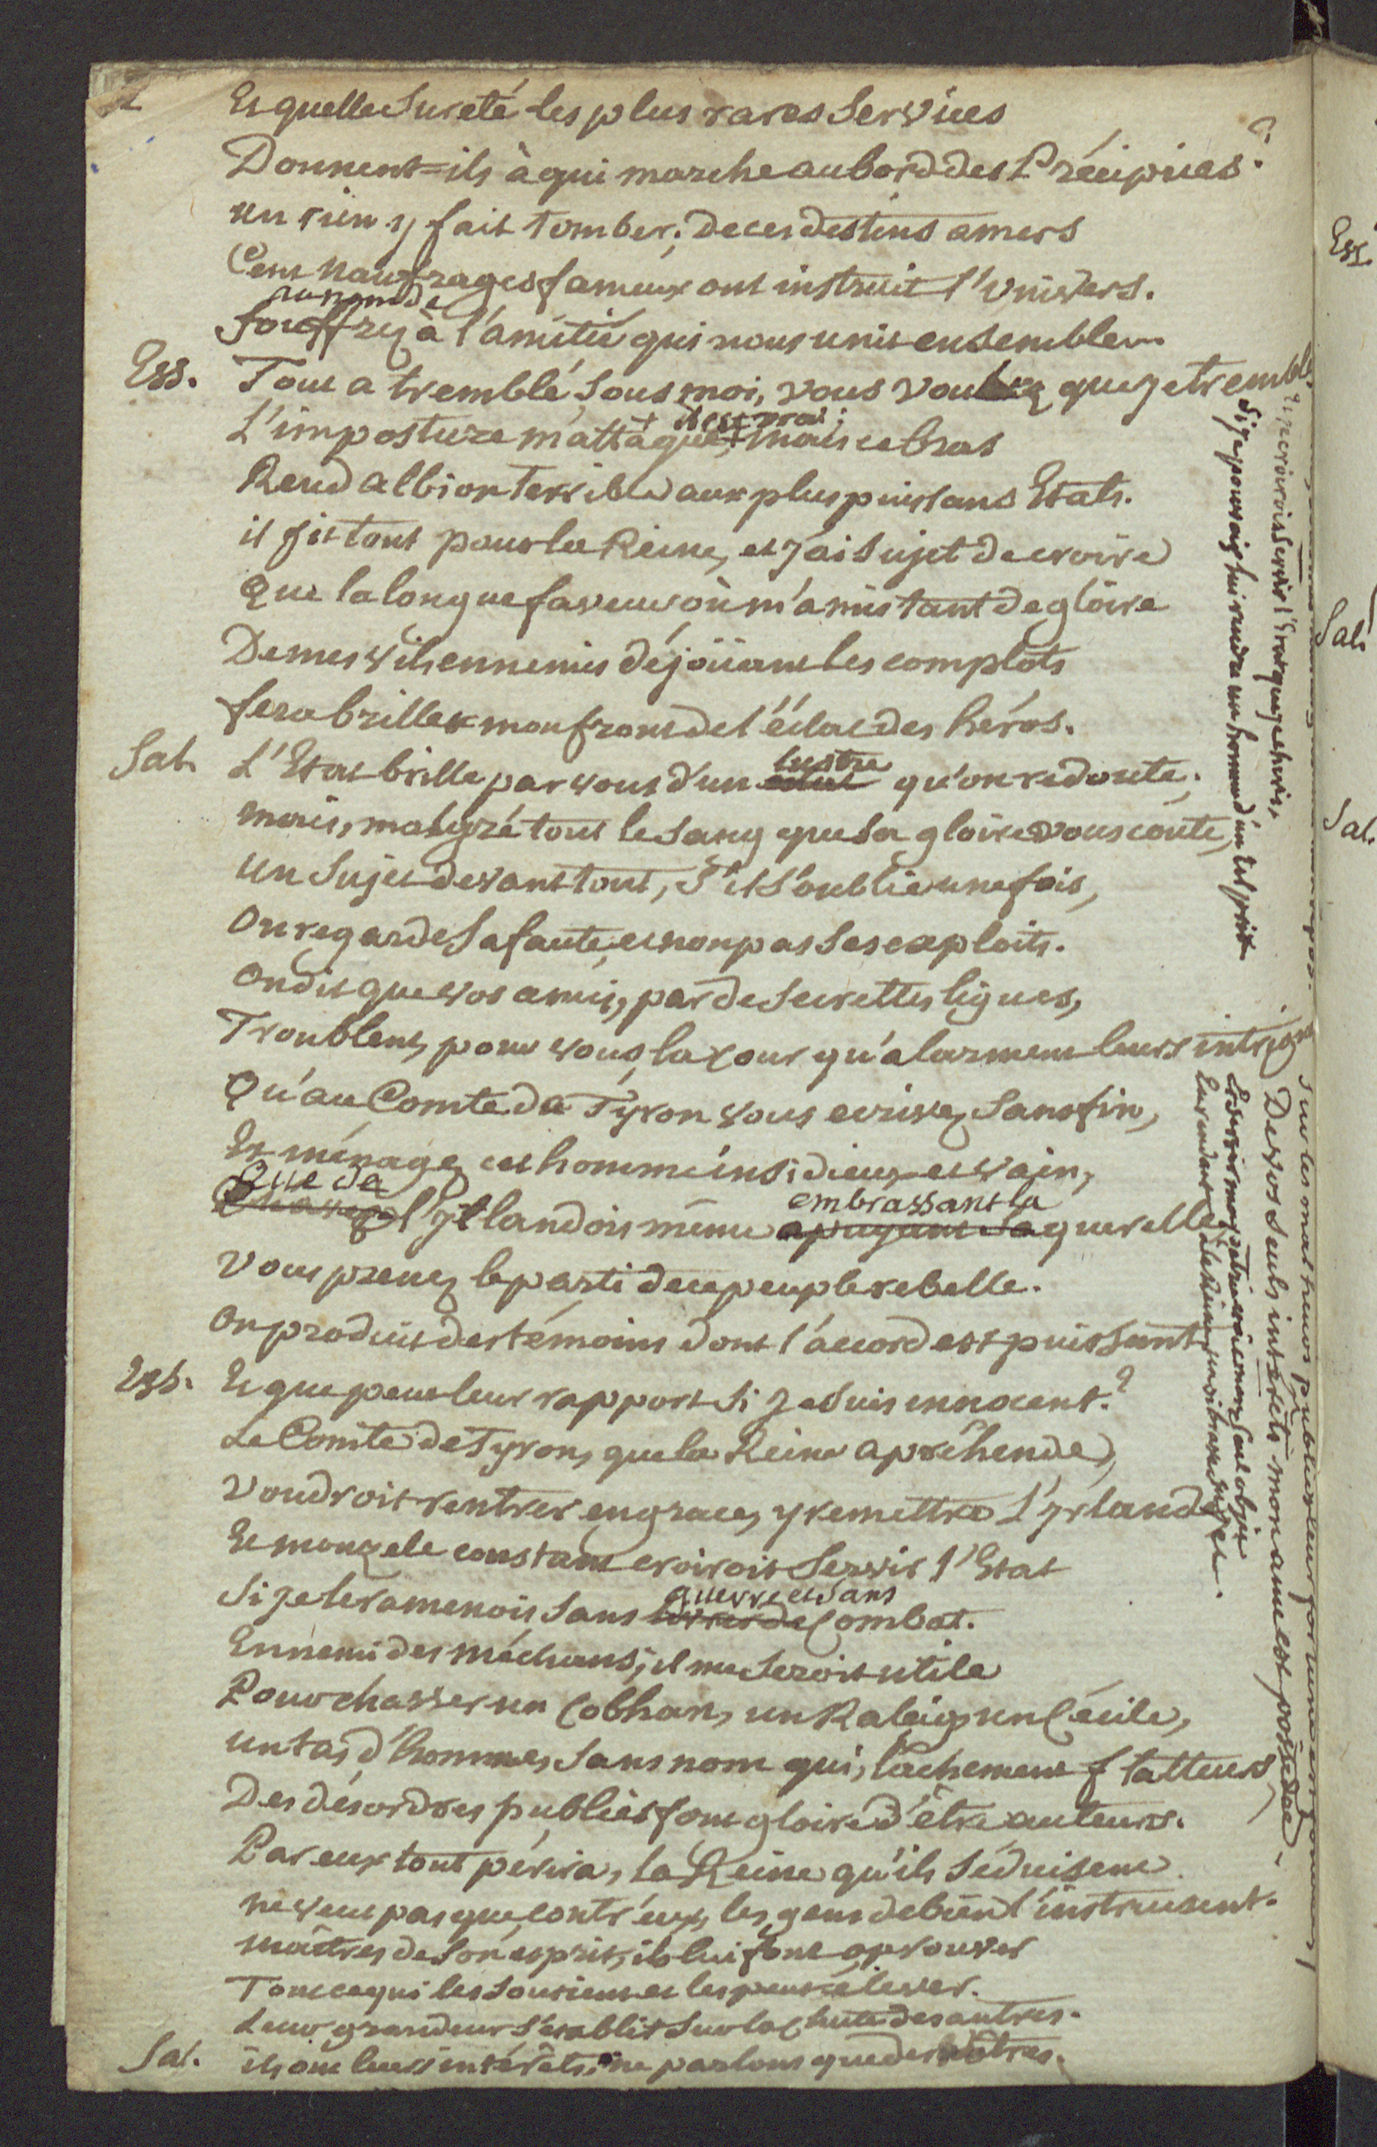 2
Et quelle Sureté les plus rares Services
Donnent=ils à qui marche au bord des Précipices?
un rien y fait tomber; de ces destins amers
Cent Naufrages fameux ont instruit l'Univers.
Souffrez à l'amitié qui nous unit ensemble...
Ess. Tout a tremblé sous moi, vous voulez que je tremble
L'imposture m'attaque, il est vrai; mais ce bras
Rend albion terrible aux plus puissans Etats.
il fit tout pour la Reine, et j'ai sujet de croire
Que la longue faveur où m'a mis tant de gloire
De mes vils ennemis déjoüant les complots
fera briller mon front de l'éclat des héros.
Sal. L'Etat brille par vous d'un lustre qu'on redoute;
mais, malgré tout le sang que sa gloire vous coûte,
un Sujet devant tout, s'il s'oublie une fois,
On regarde sa faute et non pas ses exploits.
On dit que vos amis, par de secrettes ligues,
Troublent, pour vous, la Cour qu'alarment leurs intrigues
Qu'au Comte de Tyron vous ecrivez sans fin,
Et ménagez cet homme insidieux et vain,
Que de l'Yrlandois même embrassant la querelle
Vous prenez le parti de ce peuple rebelle.
On produit des témoins dont l'accord est puissant
Ess. Et que peut leur rapport si je suis innocent?
Le Comte de Tyron, que la Reine apréhende,
Voudroit rentrer en grace, y remettre L'yrlande
Et mon zele constant croiroit servir l'Etat
Si je le ramenois sans guerre et sans Combat.
Ennemi des méchans, il me seroit utile
Pour chasser un Cobhan, un Raleig, un Cécile,
un tas d'hommes sans nom qui, lâchement flatteurs,
Des désordres publics font gloire d'être auteurs.
Par eux tout périra, la Reine qu'ils séduisent
ne veut pas que, contr'eux, les gens de bien l'instruisent.
maîtres de son esprit, ils lui font aprouver
Tout ce qui les soutient et les peut élever.
Leur grandeur s'établit sur la chute des autres.
Sal. ils ont leurs intérêts, ne parlons que des vôtres.
Et je croirois servir l'Etat que je chéris,
Si je pouvois lui rendre un homme d'un tel prix
Sur les malheurs publics leur fortune est
De vos seuls intérêts mon ame est possédée.
Ess.
Sal.
Sal.